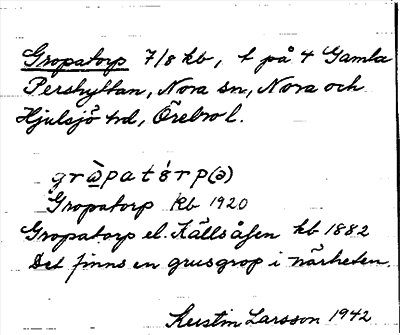 Gropatorp 7/8 kb, t på 4 Gamla
Pershyttan, Nora sn, Nora och
Hjulsjö trd, Örebro l.
grὼpatórp(ə)
Gropatorp kb 1920
Gropatorp el. Källsåsen kb 1882
Det finns en grusgrop i närheten.
Kerstin Larsson 1942